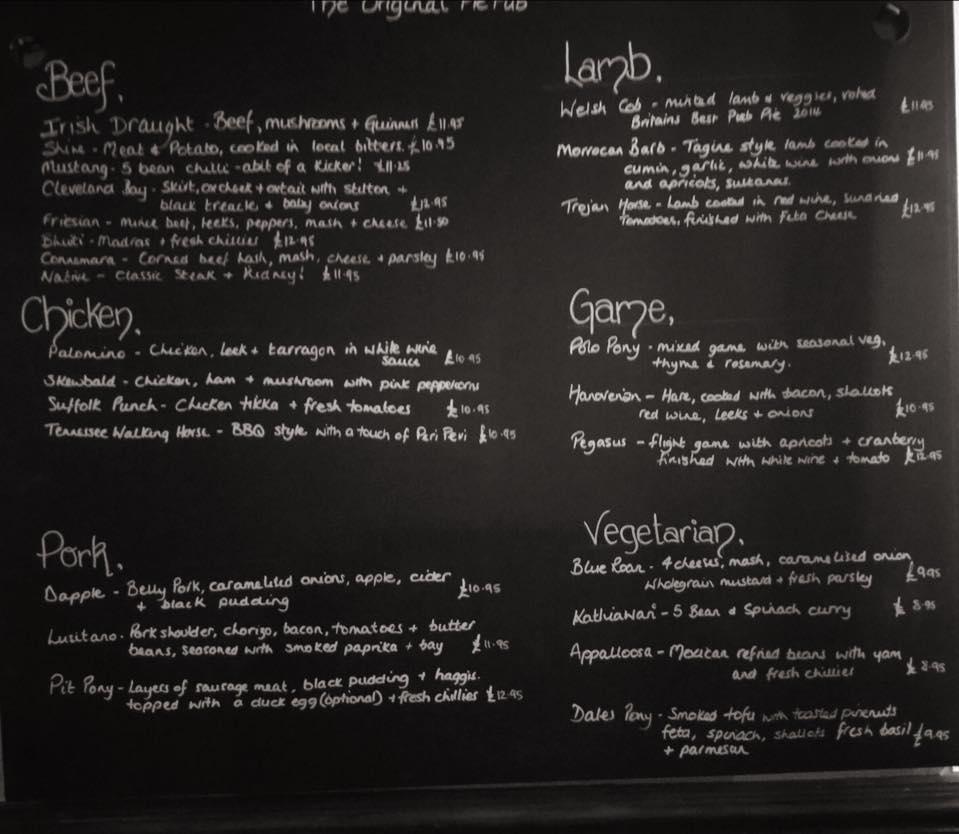 The Original Pie Pub
Beef.
Irish Draught - Beef, mushrooms + Guinness £11.95
Shire - Meat & Potato, cooked in local bitters. £10.95
Mustang - 5 bean chilli - abit of a kicker! £11.25
Cleveland Bay - Skirt, oxcheek + oxtail with stilton +
black treacle + baby onions £12.95
Friesian - mince beef, leeks, peppers, mash + cheese £11.50
Bhuti - Madras + fresh chillies £12.95
Connemara - Corned beef hash, mash, cheese + parsley £10.95
Native - Classic Steak + Kidney! £11.95
Chicken.
Palomino - Chicken, leek + tarragon in white wine
sauce £10.95
Skewbald - Chicken, ham + mushroom with pink peppercorns
Suffolk Punch - Chicken tikka + fresh tomatoes £10.95
Tennessee Walking Horse - BBQ style with a touch of Peri Peri £10.95
Pork.
Dapple - Belly Pork, caramelised onions, apple, cider
+ black pudding £10.95
Lusitano - Pork shoulder, chorizo, bacon, tomatoes + butter
beans, seasoned with smoked paprika + bay £11.95
Pit Pony - Layers of sausage meat, black pudding + haggis.
topped with a duck egg (optional) + fresh chillies £12.95
Lamb.
Welsh Cob - minted lamb & veggies, voted
Britains Best Pub Pie 2014 £11.95
Morrocan Barb - Tagine style lamb cooked in
cumin, garlic, white wine with onions £11.95
and apricots, sultanas.
Trojan Horse - Lamb cooked in red wine, sundried
Tomatoes, finished with Feta Cheese £12.95
Game,
Polo Pony - mixed game with seasonal veg,
thyme & rosemary. £12.95
Hanoverian - Hare, cooked with bacon, shallots
red wine, leeks + onions £10.95
Pegasus - flight game with apricots + cranberry
finished with white wine + tomato £12.95
Vegetarian.
Blue Roan - 4 cheeses, mash, caramelised onion,
Wholegrain mustard + fresh parsley £9.95
Kathiawari - 5 Bean & Spinach curry £8.95
Appalloosa - Mexican refried beans with yam
and fresh chillies £8.95
Dales Pony - Smoked tofu with toasted pinenuts
feta, spinach, shallots fresh basil £9.95
+ parmesan